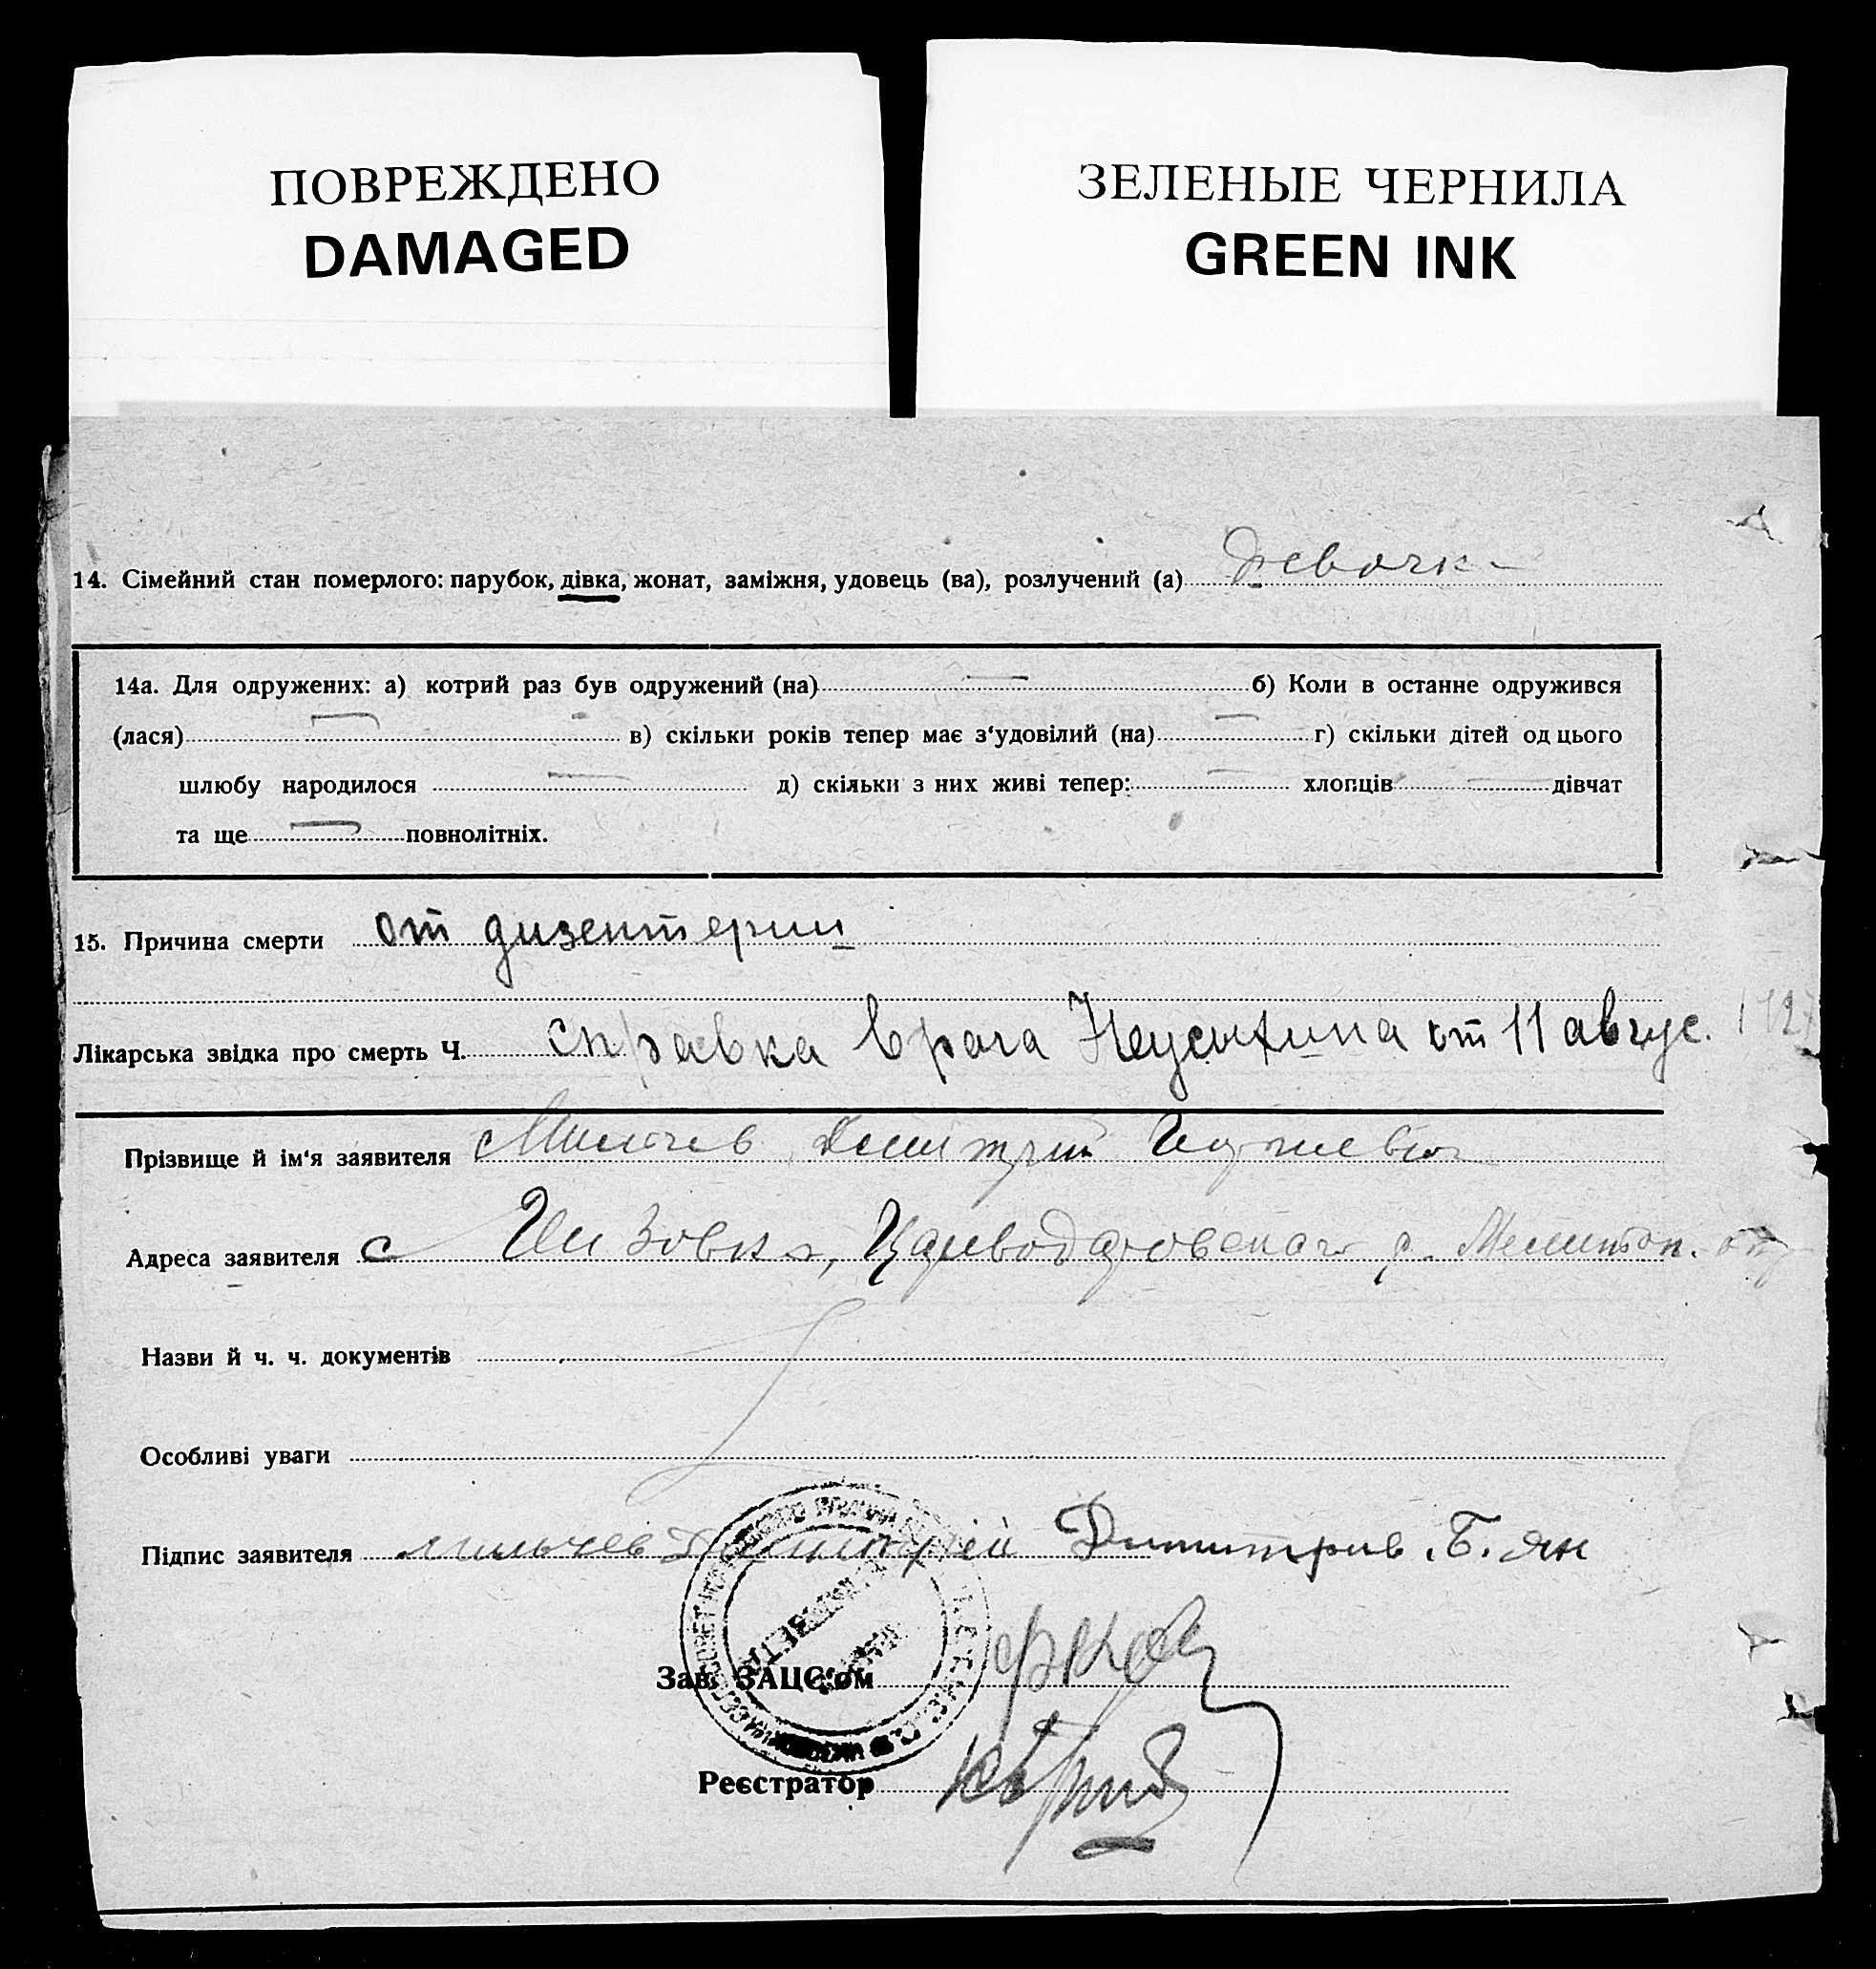 ПОВРЕЖДЕНО
DAMAGED
ЗЕЛЕНЫЕ ЧЕРНИЛА
GREEN INK
14. Сімейний стан померлого: парубок, дівка, жонат, заміжня, удовець (ва), розлучений (а) девочка
14а. Для одружених: а) котрий раз був одружений (на) — б) Коли в останне одружився
(лася) — в) скільки років тепер має з‘удовілий (на) — г) скільки дітей од цього
шлюбу народилося — д) скільки з них живі тепер: — хлопців — дівчат
та ще — повнолітніх.
15. Причина смерти от дизентерии
Лікарська звідка про смерть Ч. справка врача Неусыхина от 11 авгус.
Прізвище й ім‘я заявителя Мильчев Дмитрий
Адреса заявителя с Инзовка, Цареводаровского р. Мелитоп.
Назви й ч. ч. документів
Особливі уваги
Підпис заявителя мильчев Димитрий
Зав. ЗАЦС‘ом
Реєстратор